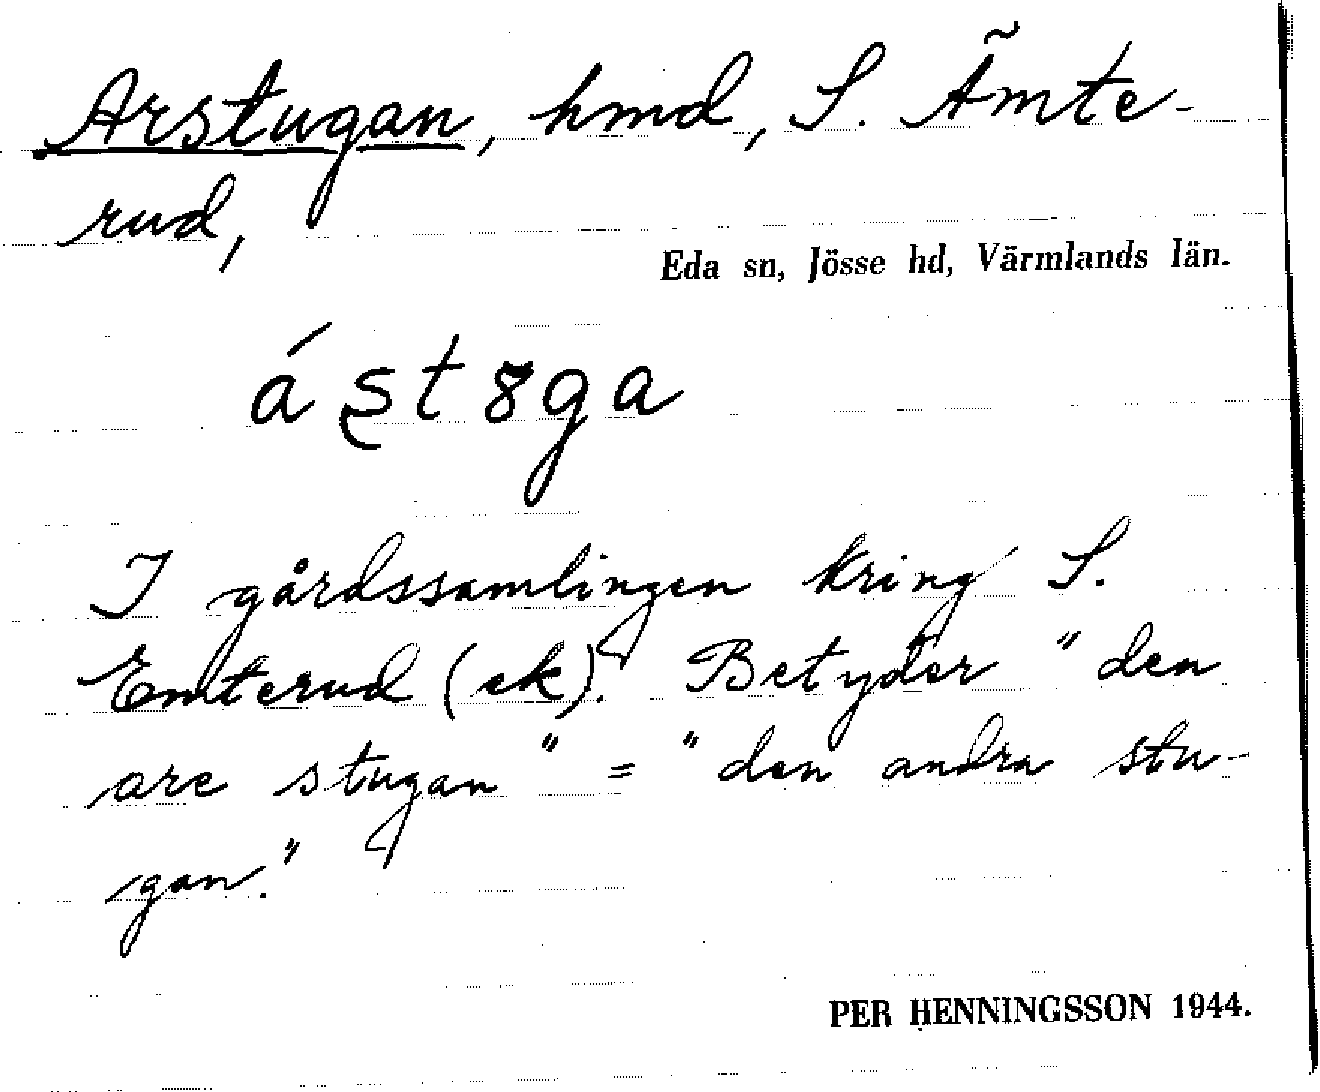 Arstugan, hmd, S. Ämte-
rud,
Eda sn, Jösse hd, Värmlands län.
áʂtȣga
I gårdssamlingen kring S.
Emterud (ek). Betyder "den
are stugan" = "den andra stu-
gan."
PER HENNINGSSON 1944.